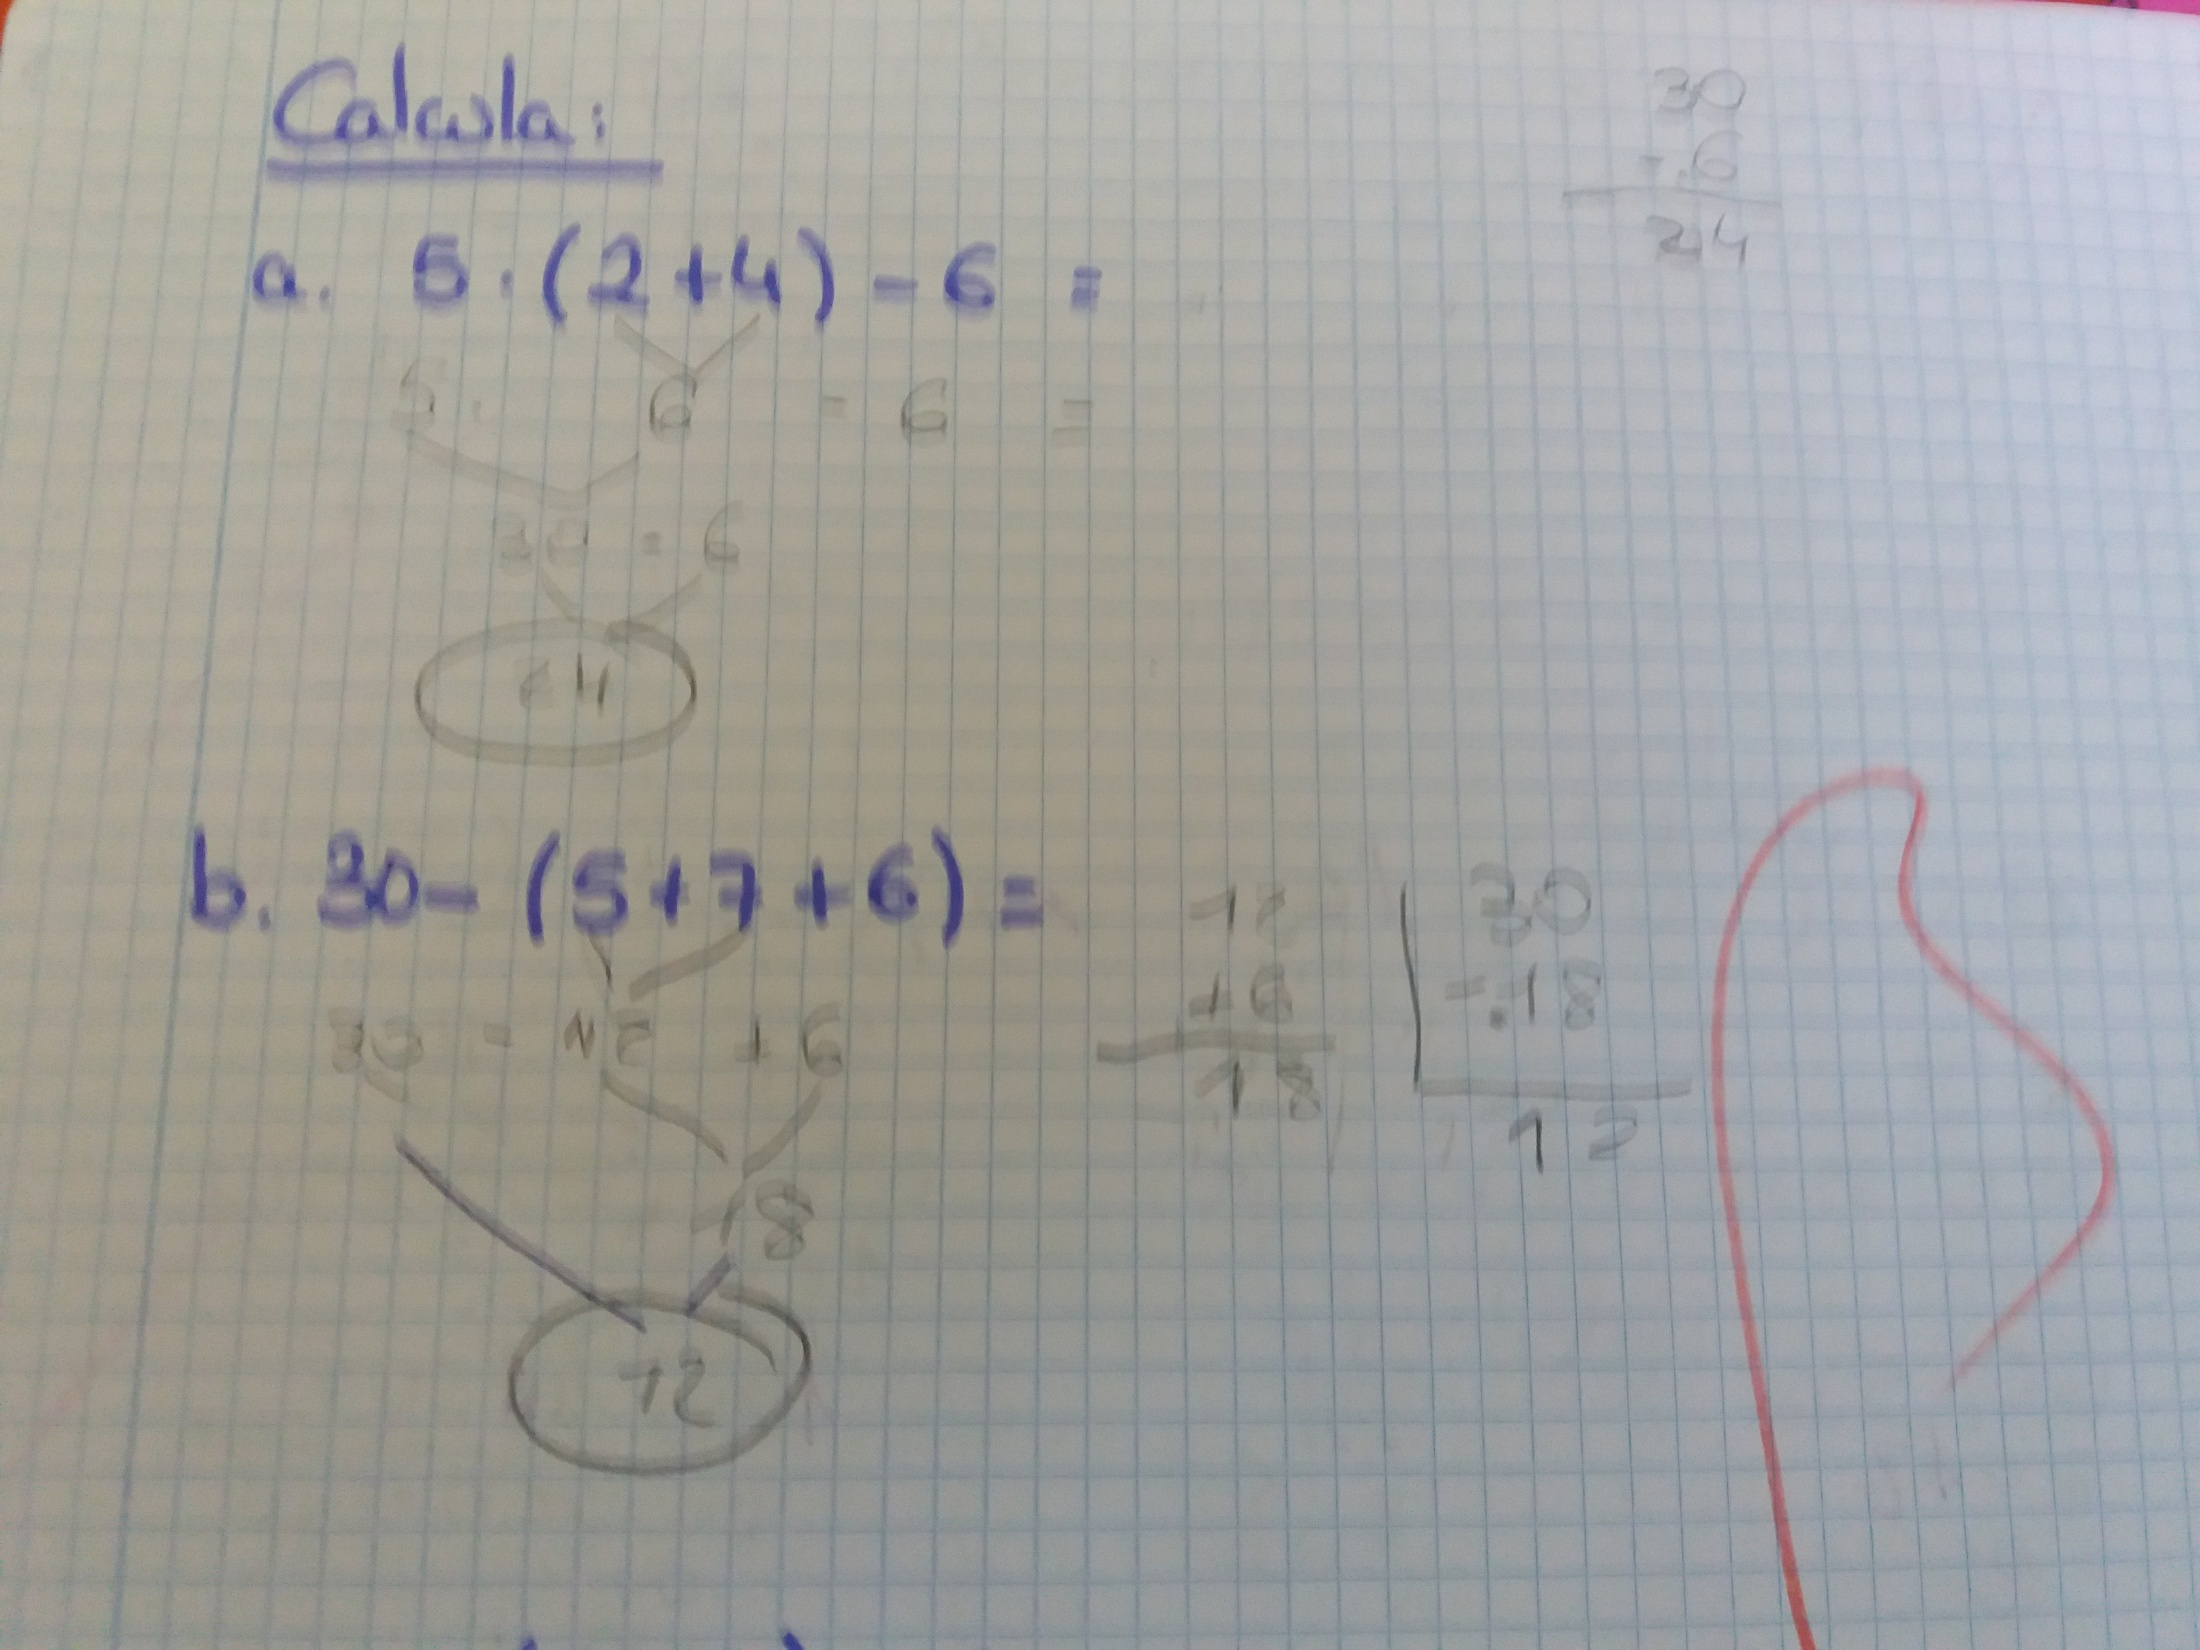 Calcula:
30
- 6
24
a. 5 · (2+4) - 6 =
5 · 6 - 6 =
30 - 6
24
b. 30 - (5+7+6) =
30 - 12 + 6
18
12
12
+6
18
30
- 18
12